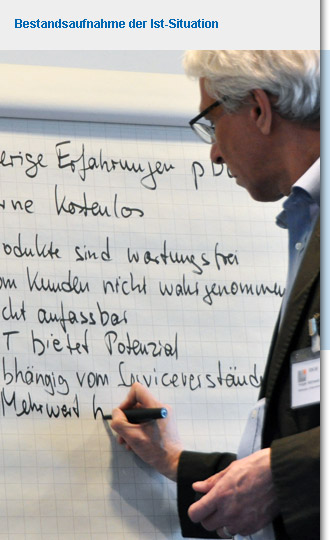 Bestandsaufnahme der Ist-Situation
erige Erfahrungen p
rne Kostenlos
odukte sind wartungsfrei
om Kunden nicht wahrgenommen
cht anfassbar
T bietet Potenzial
bhängig vom Serviceverstände
Mehrwert h